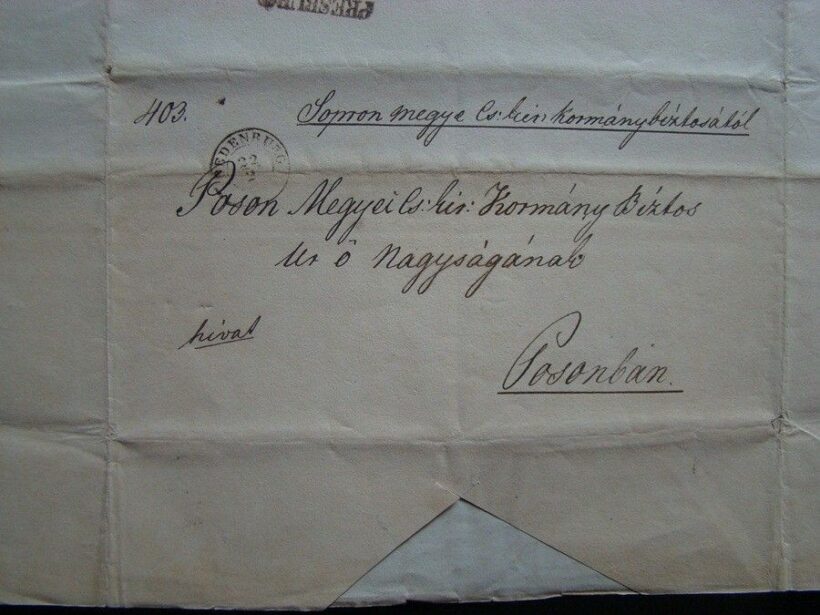 PRESBURG
403. Sopron megye Cs: kir: Kormánybiztosától
OEDENBURG
Poson Megyei Cs: kir: Kormány Biztos
Ur ő Nagyságának
hivat
Posonbán.